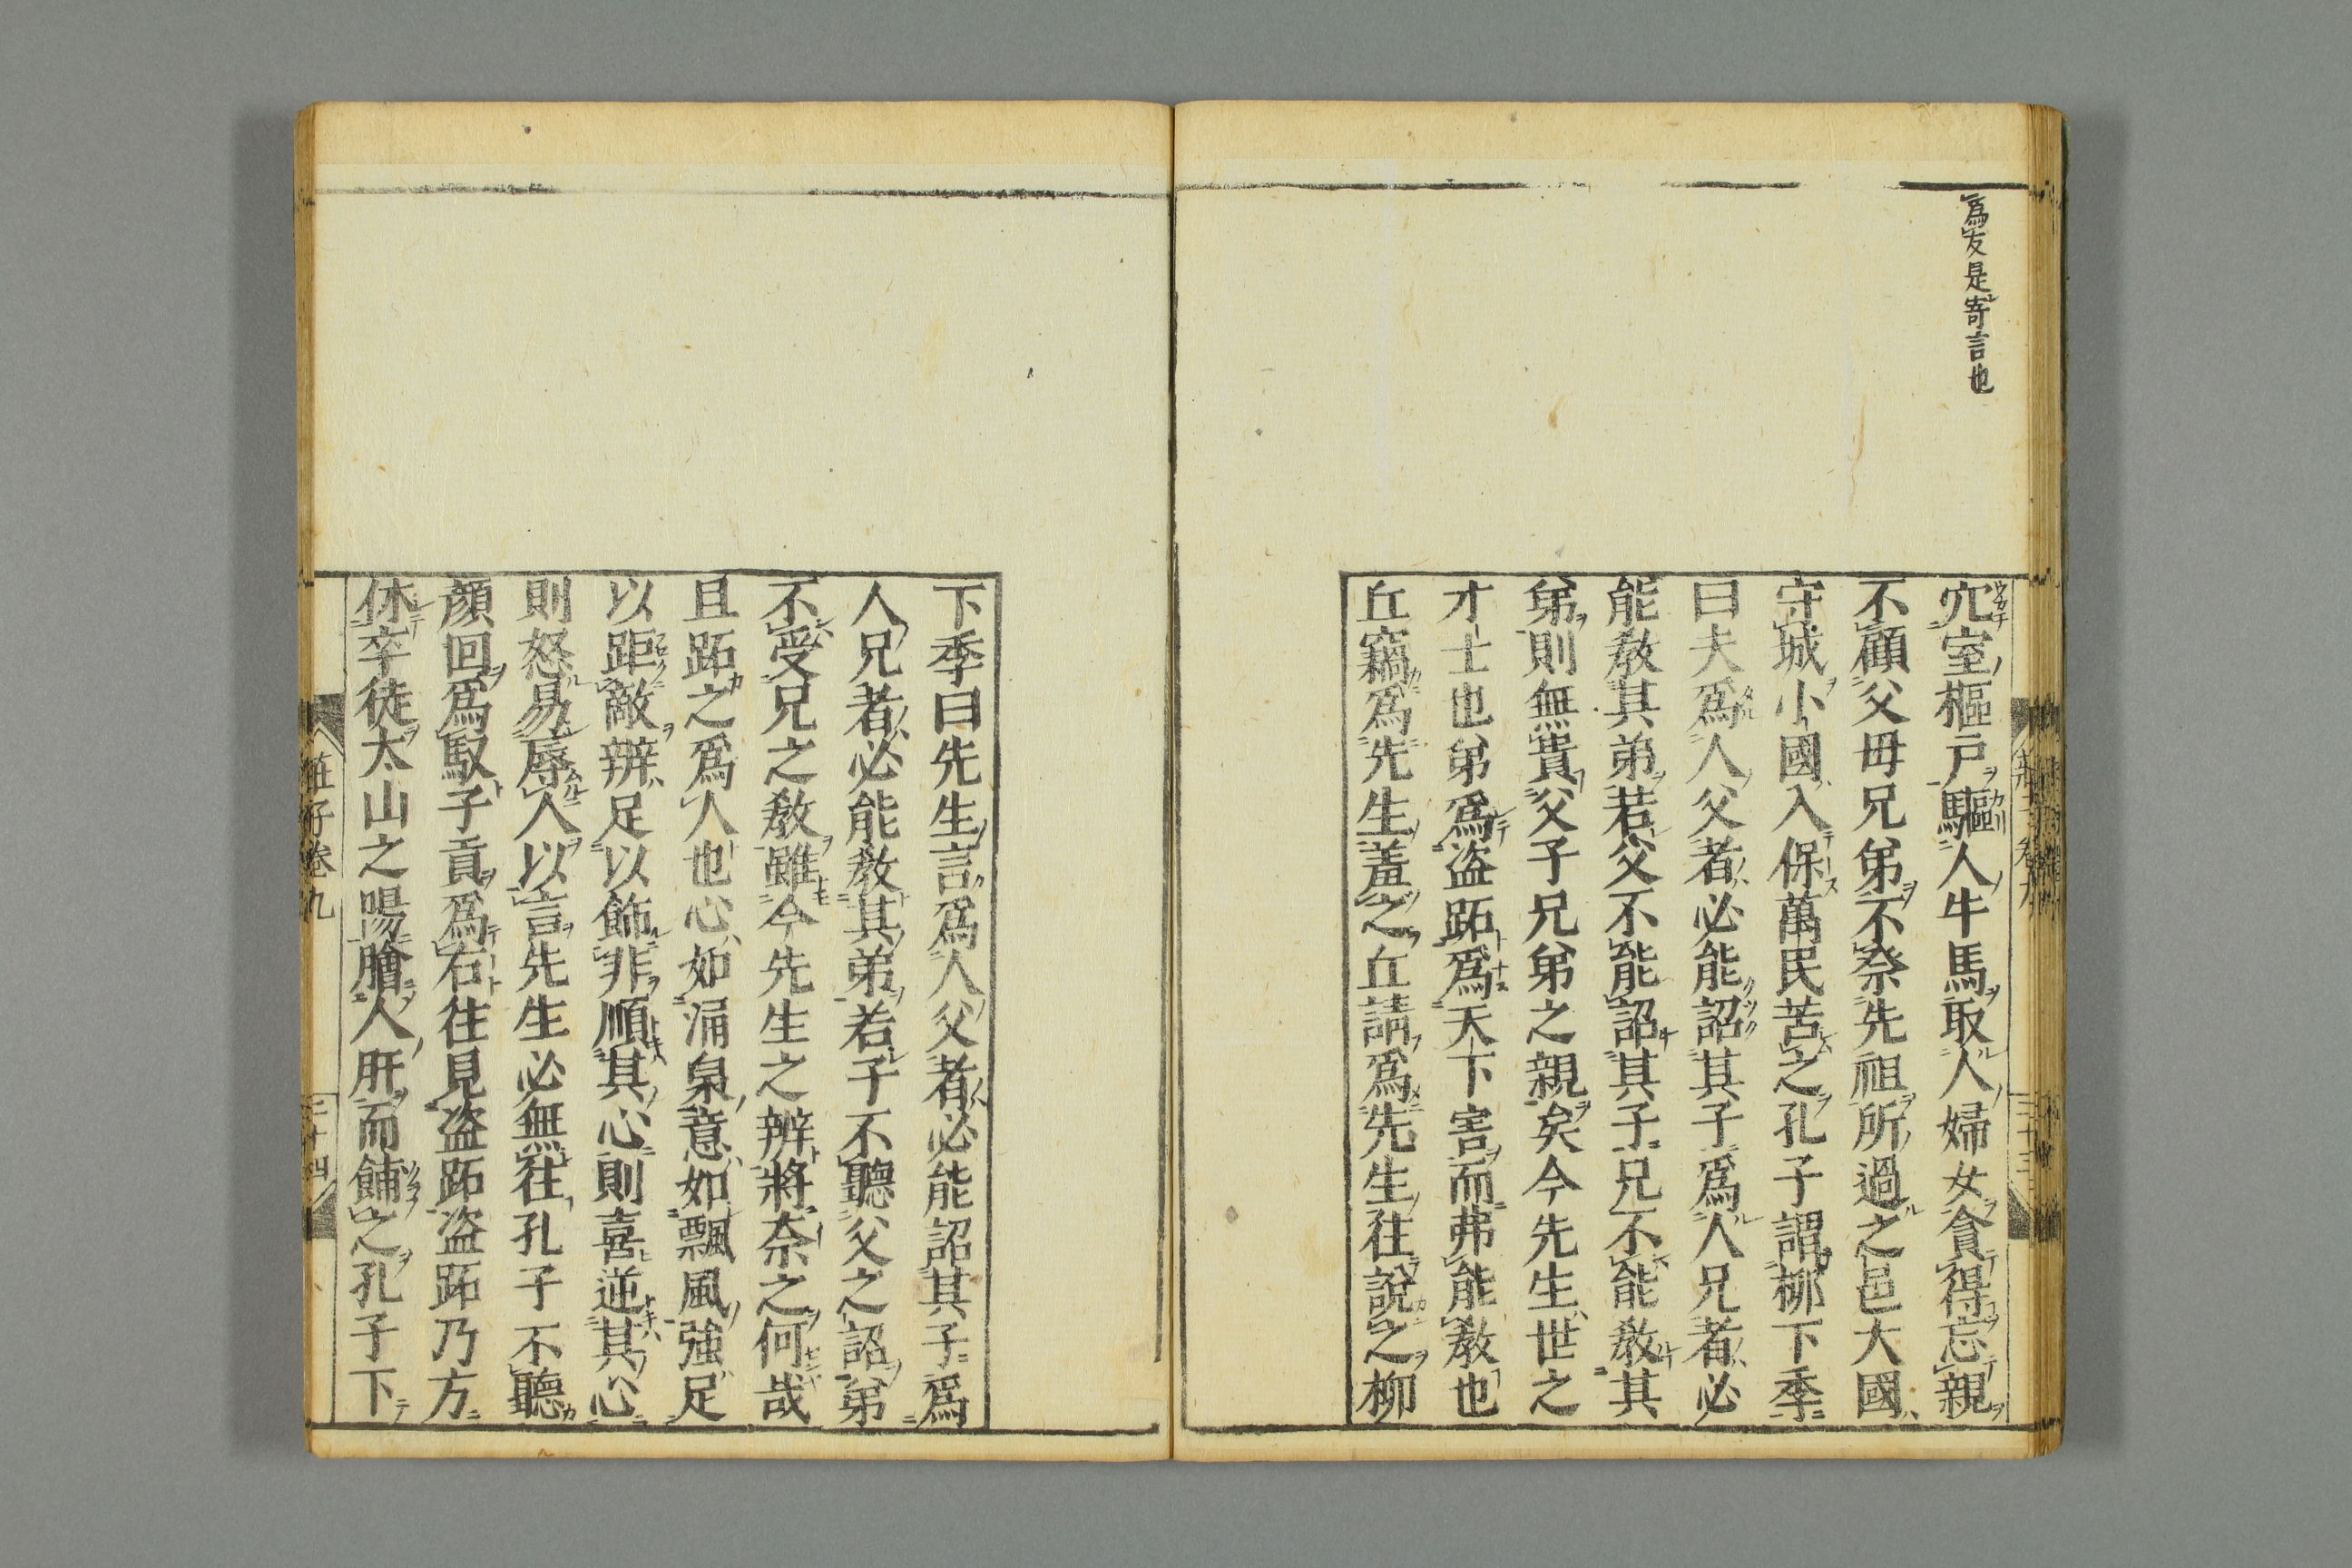 爲友是寄言也
穴室樞戶驅人牛馬取人婦女貪得忘親
不顧父母兄弟不祭先祖所過之邑大國
守城小國入保萬民苦之孔子謂柳下季
曰夫爲人父者必能詔其子爲人兄者必
能敎其弟若父不能詔其子兄不能敎其
弟則無貴父子兄弟之親矣今先生世之
才士也弟爲盜跖爲天下害而弗能敎也
丘竊爲先生羞之丘請爲先生往說之柳
下季曰先生言爲人父者必能詔其子爲
人兄者必能敎其弟若子不聽父之詔弟
不受兄之敎雖今先生之辨將奈之何哉
且跖之爲人也心如涌泉意如飄風強足
以距敵辨足以飾非順其心則喜逆其心
則怒易辱人以言先生必無往孔子不聽
顏回爲馭子貢爲右往見盜跖盜跖乃方
休卒徒太山之陽膾人肝而餔之孔子下
莊子卷九
二十四